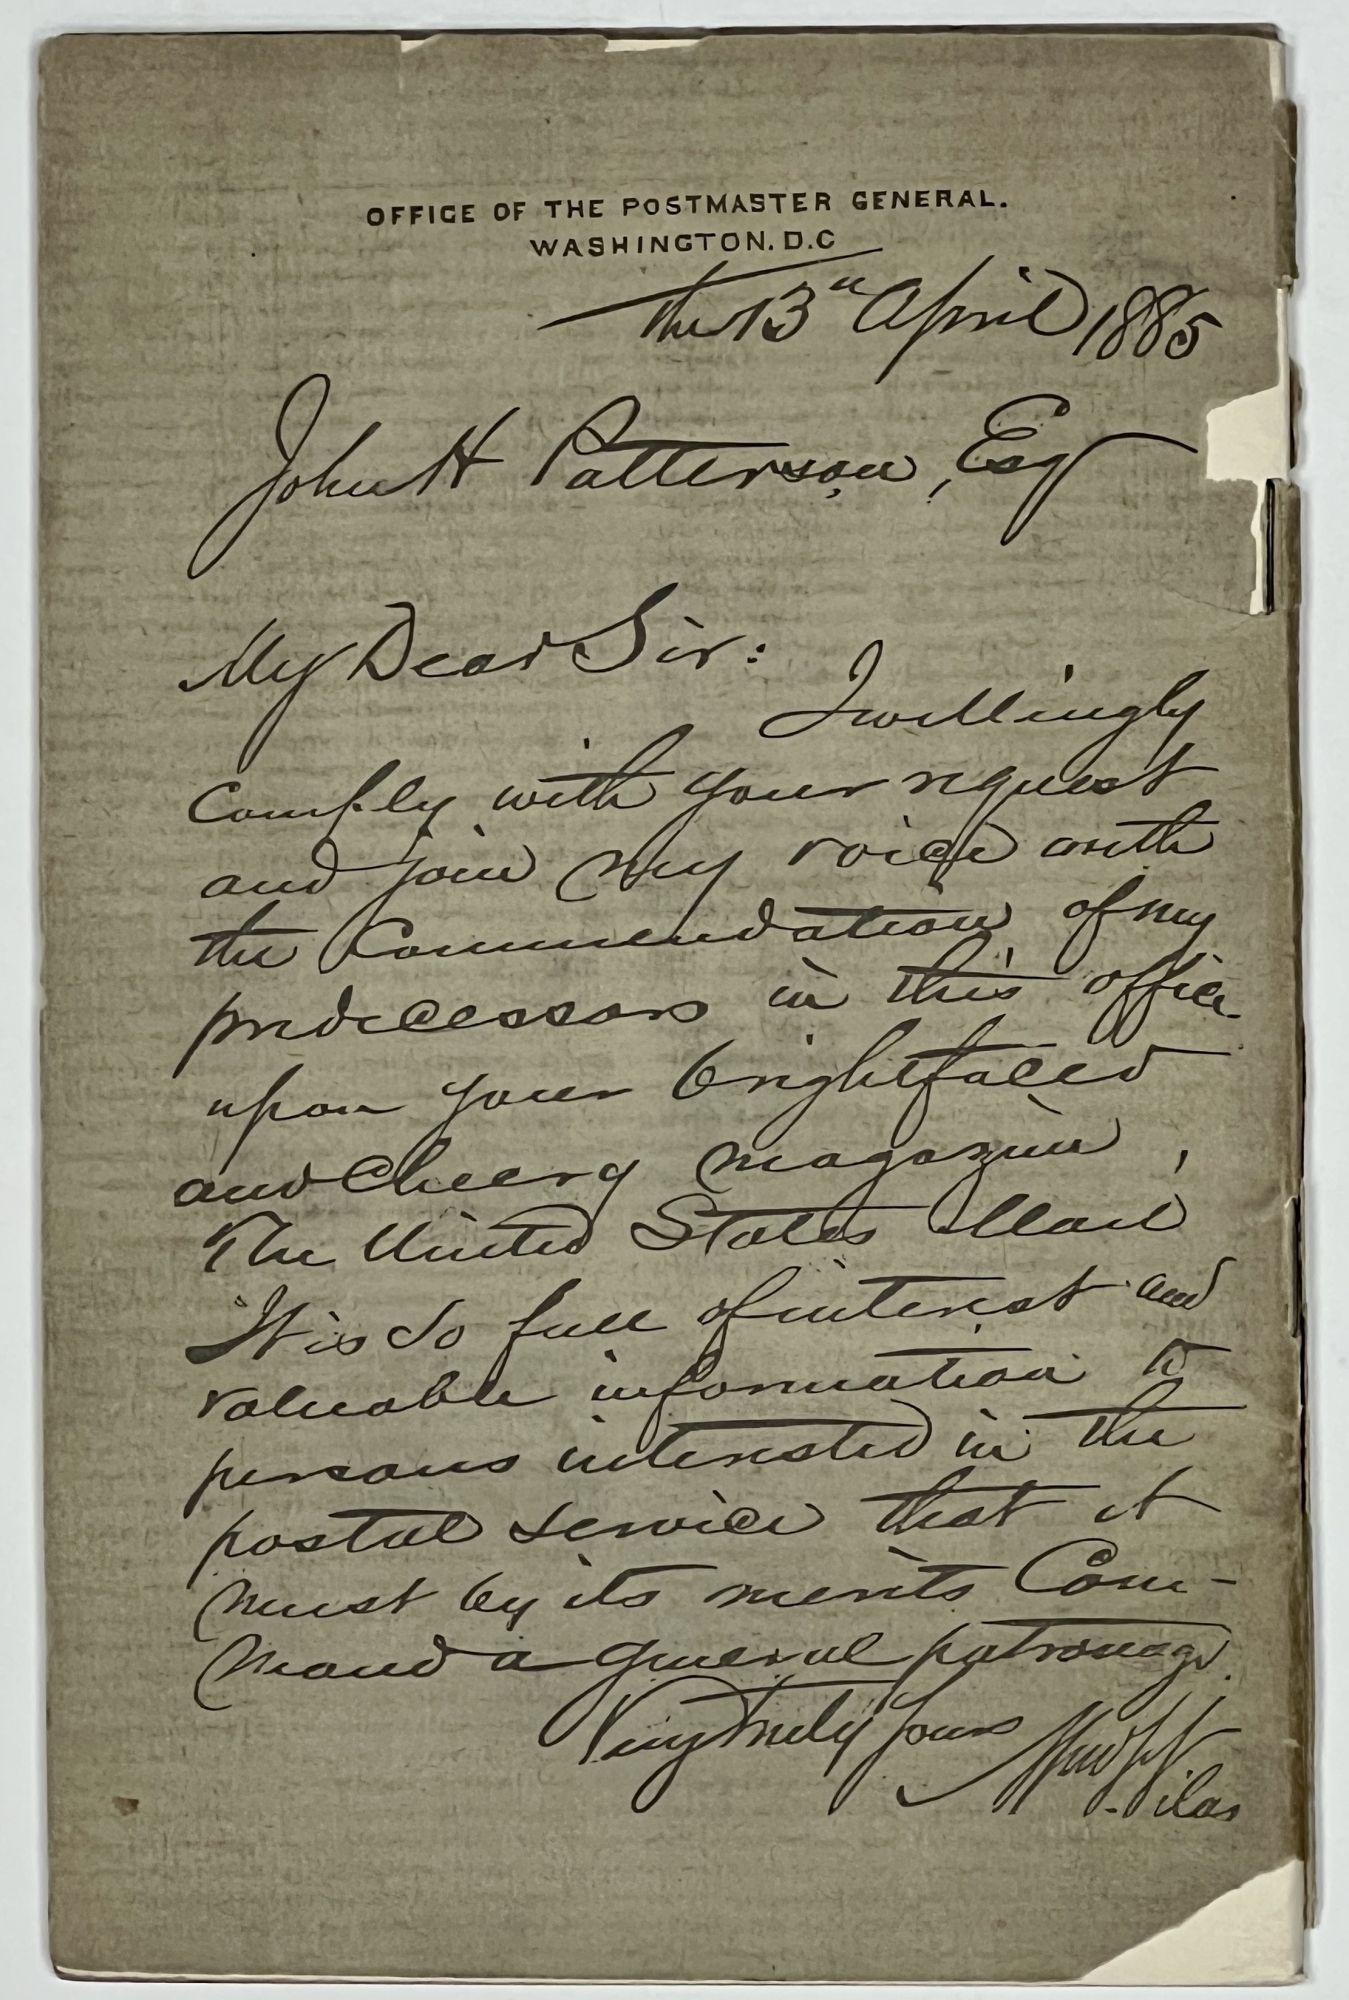 OFFICE OF THE POSTMASTER GENERAL.
WASHINGTON. D. C
the 13" April 1885
John H Patterson, Esq
My Dear Sir:
I willingly
comply with your request
and join my voice with
the commendation of my
predecessors in this office
upon your brightfaced
and cheery magazine,
The United States Mail
It is so full of interest and
valuable information to
persons interested in the
postal service that it
must by its merits Com-
mand a general patronage.
Very truly yours
Vilas